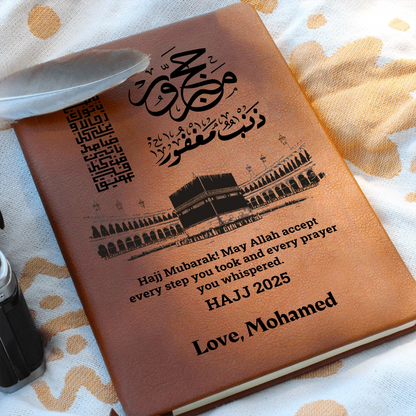 حج مبرور
ذنب مغفور
Hajj Mubarak! May Allah accept
every step you took and every prayer
you whispered.
HAJJ 2025
Love, Mohamed